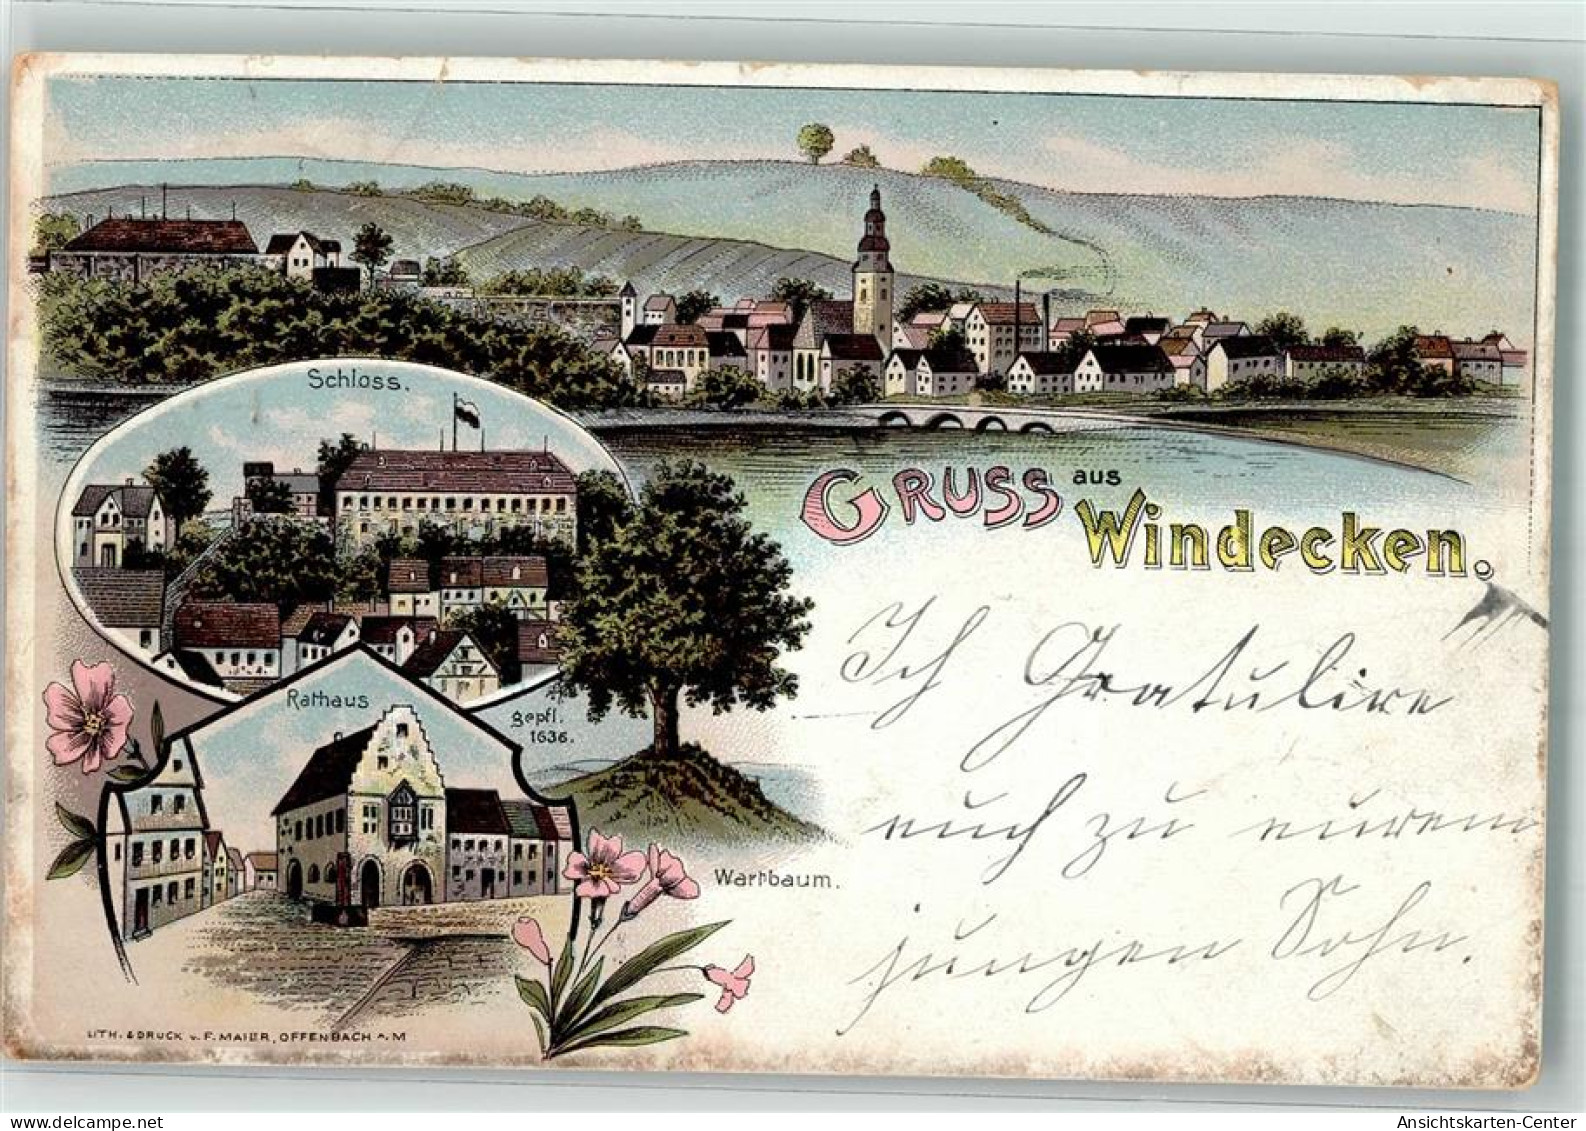 Schloss.
GRUSS aus
Windecken.
Rathaus
gepfl.
1636.
Wartbaum.
Ich Gratulire
euch zu eurem
jungen Sohn.
LITH. & DRUCK v. F. MAIER, OFFENBACH a. M
delcampe.net
Ansichtskarten-Center